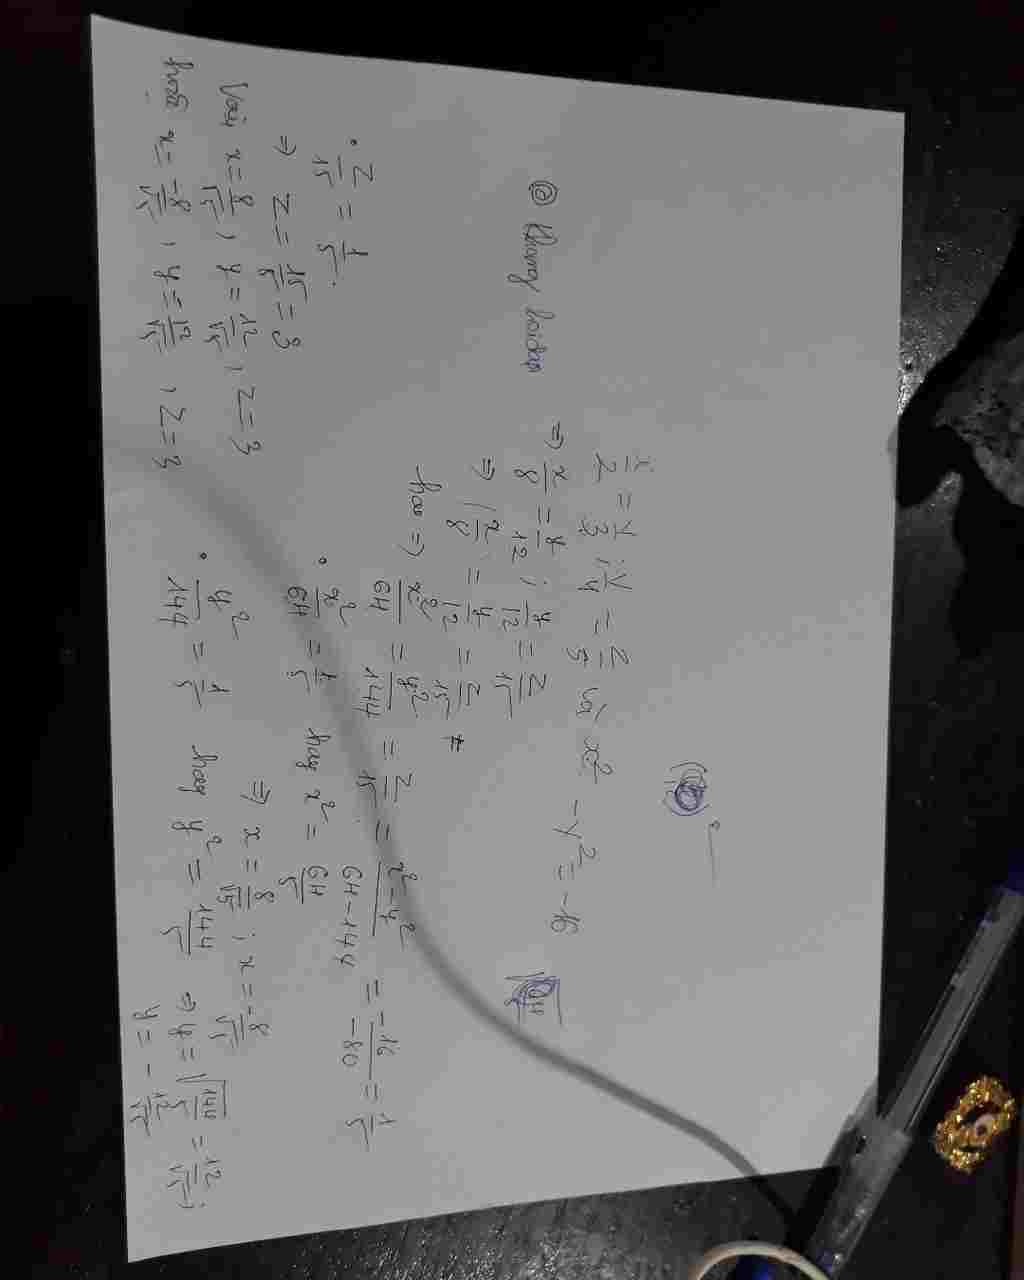 x/2 = y/3 ; y/4 = z/5 và x² - y² = -16
⇒ x/8 = y/12 ; y/12 = z/15
⇒ x/8 = y/12 = z/15
hay ⇒ x²/64 = y²/144 = z/15 = x² - y²/64 - 144 = -16/-80 = 1/5
• x²/64 = 1/5 hay x² = 64/5
⇒ x = 8/√5 ; x = -8/√5
• y²/144 = 1/5 hay y² = 144/5 ⇒ y = √144/5 = 12/√5 ;
y = - 12/√5
@ Khang hoidap
• z/15 = 1/5
⇒ z = 15/5 = 3
Vậy x = 8/√5 , y = 12/√5 , z = 3
hoặc x = -8/√5 , y = 12/√5 , z = 3